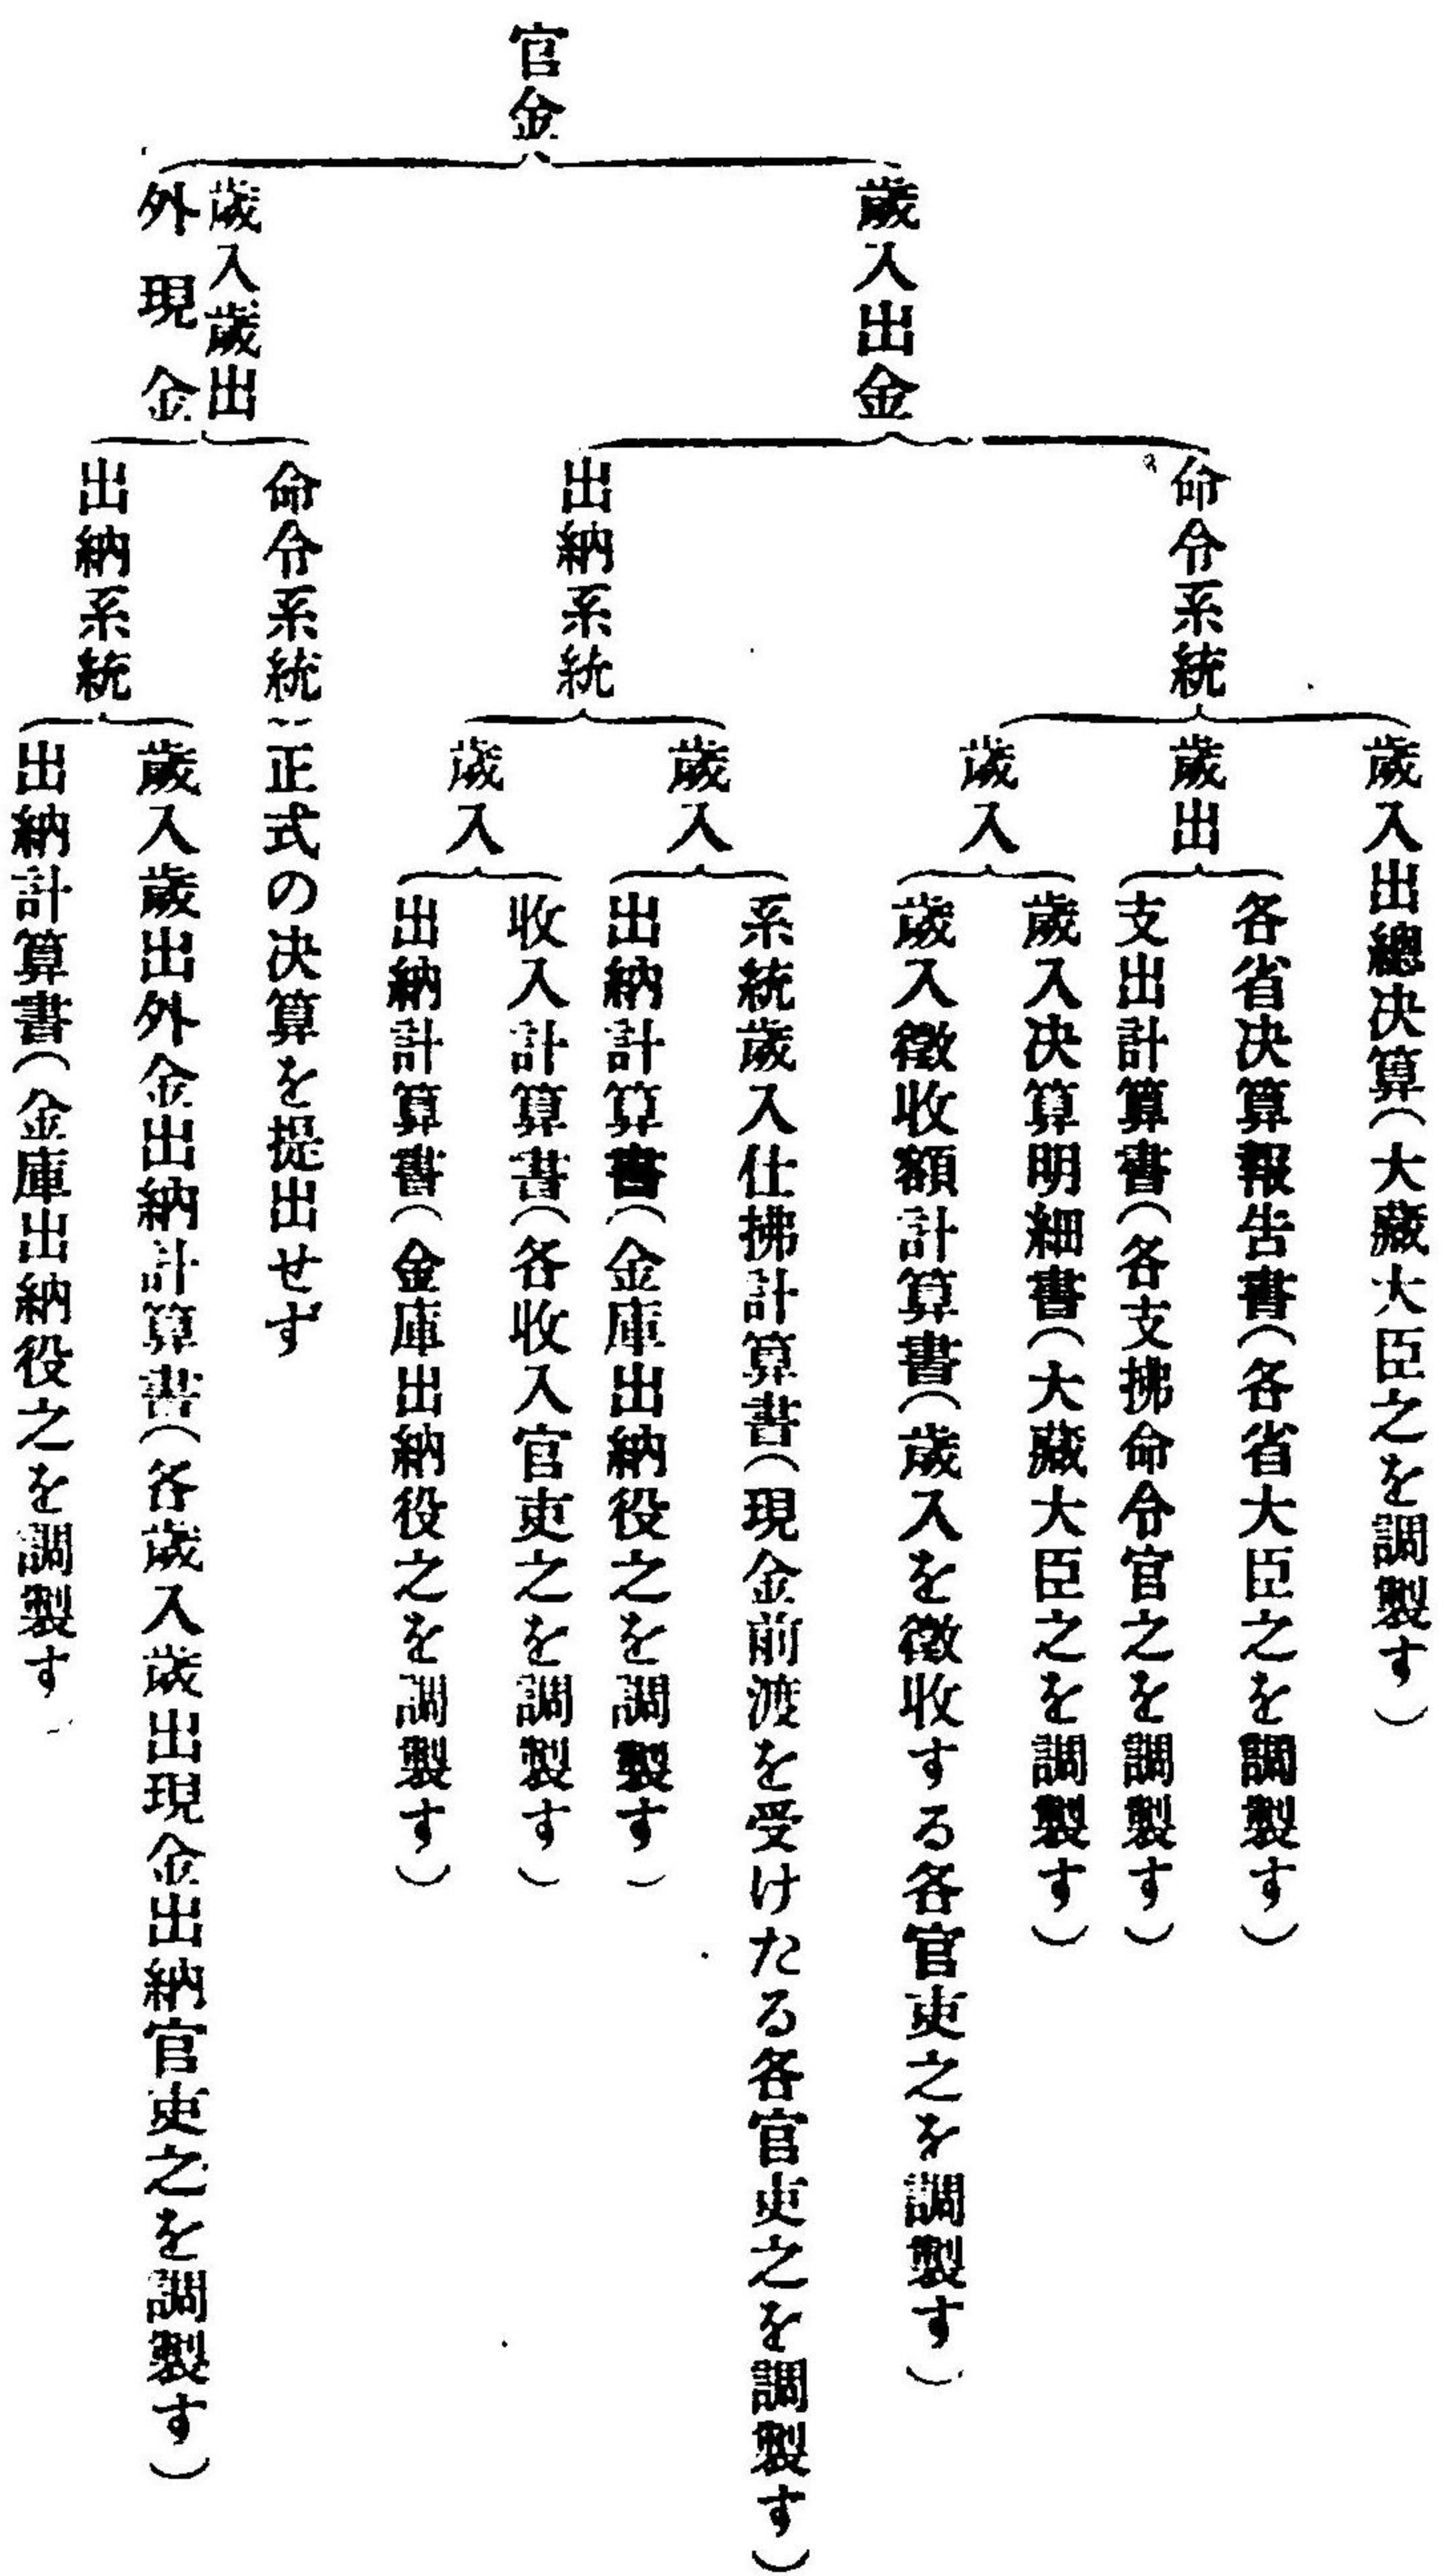 官金
歲入出金
命令系統
歲入出總決算(大藏大臣之を調製す)
歲出
各省決算報告書(各省大臣之を調製す)
支出計算書(各支拂命令官之を調製す)
歲入
歲入決算明細書(大藏大臣之を調製す)
歲入徵收額計算書(歲入を徵收する各官吏之を調製す)
出納系統
歲入
系統歲入仕拂計算書(現金前渡を受けたる各官吏之を調製す)
出納計算書(金庫出納役之を調製す)
歲入
收入計算書(各收入官吏之を調製す)
出納計算書(金庫出納役之を調製す)
歲入歲出
外現金
命令系統:正式の決算を提出せず
出納系統
歲入歲出外金出納計算書(各歲入歲出現金出納官吏之を調製す)
出納計算書(金庫出納役之を調製す